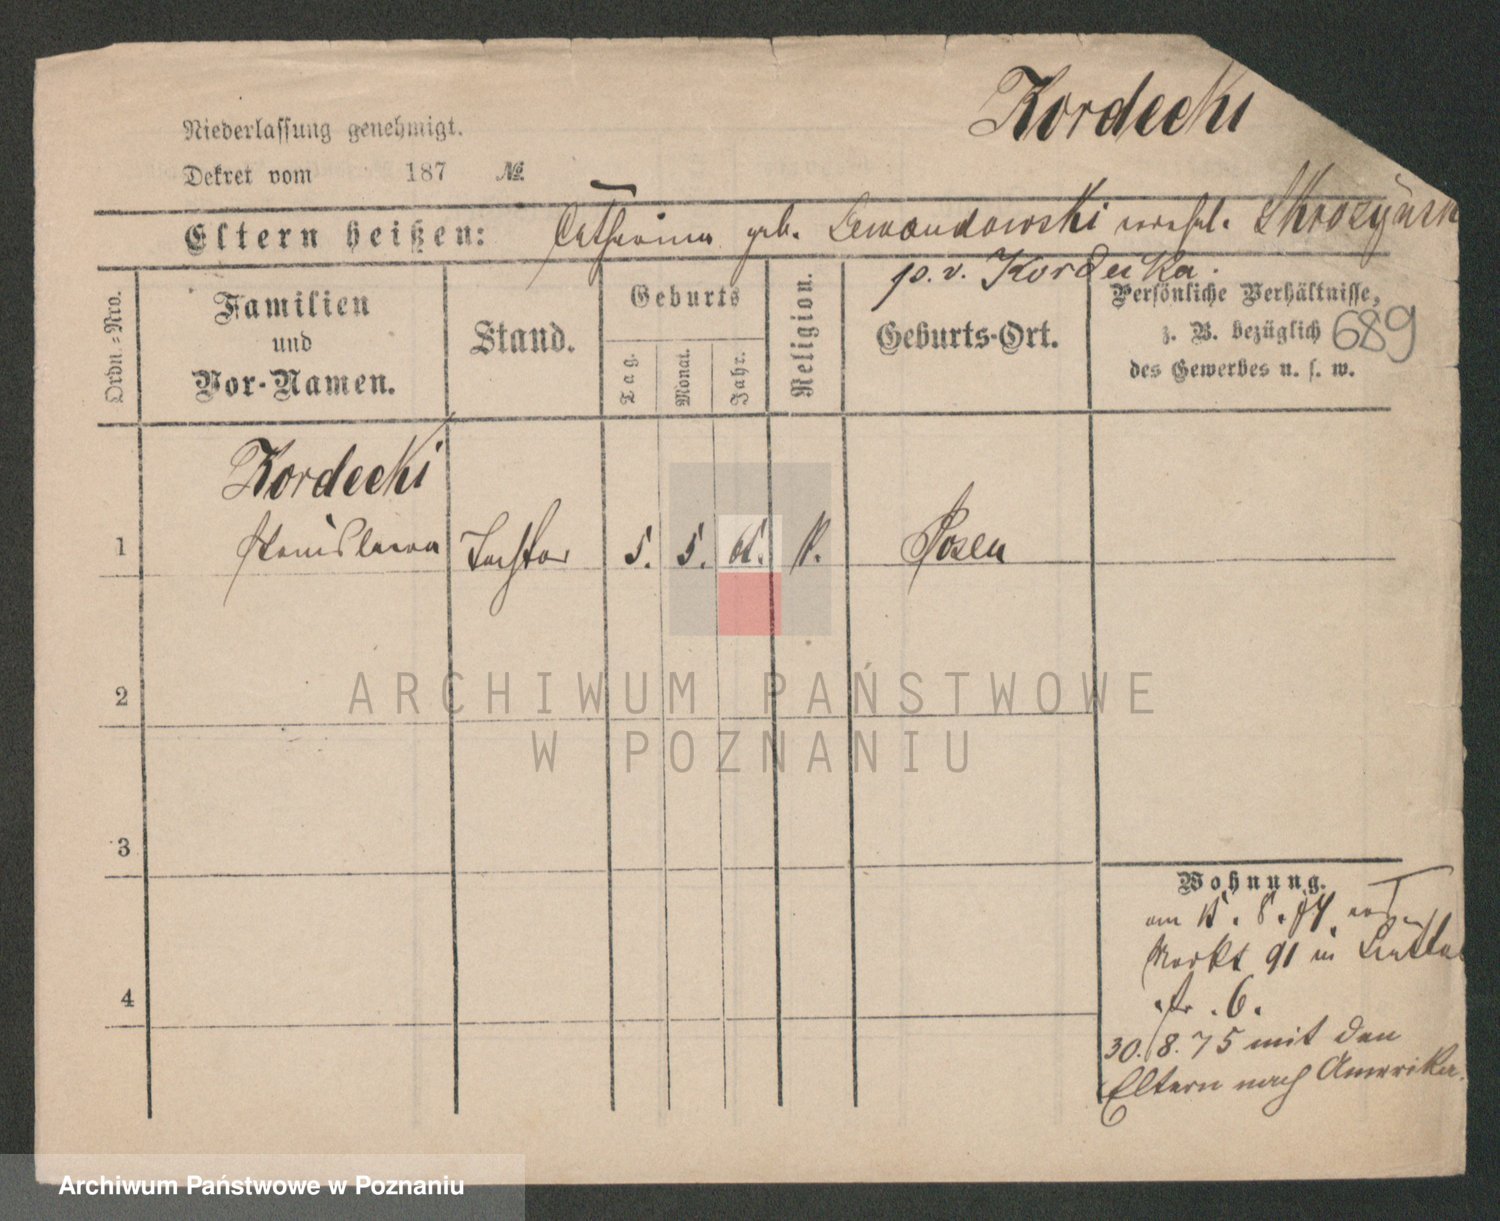 Kordecki
Niederlassung genehmigt.
Dekret vom 187 №
Eltern heißen: Catharina geb. Lewandowski verehel.
p. v. Kordecka.
Ordn.-Nro.
Familien
und
Vor-Namen.
Stand.
Geburts
Tag.
Monat.
Jahr.
Religion.
Geburts-Ort.
Persönliche Verhältnisse,
z. B. bezüglich
des Gewerbes u. s. w.
689
Kordecki
1 Stanislawa Tochter 5. 5. 65. k. Posen
2
3
4
Wohnung.
am 15. 8. 74
Markt 91 in
30./8. 75 mit den
Eltern nach Amerika.
ARCHIWUM PAŃSTWOWE
W POZNANIU
Archiwum Państwowe w Poznaniu